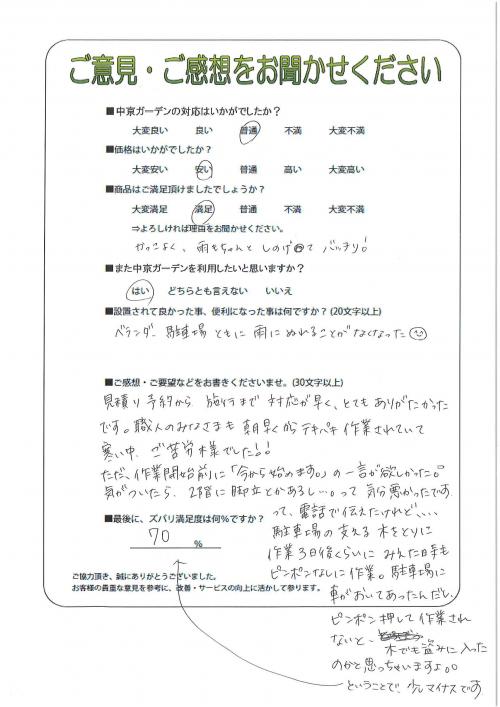 ご意見・ご感想をお聞かせください
■中京ガーデンの対応はいかがでしたか？
大変良い 良い 普通 不満 大変不満
■価格はいかがでしたか？
大変安い 安い 普通 高い 大変高い
■商品はご満足頂けましたでしょうか？
大変満足 満足 普通 不満 大変不満
⇒よろしければ理由をお聞かせください。
かっこよく、雨もちゃんと しのげて バッチリ!
■また中京ガーデンを利用したいと思いますか？
はい どちらとも言えない いいえ
■設置されて良かった事、便利になった事は何ですか？(20文字以上)
ベランダ、駐車場 ともに 雨に ぬれることがなくなった
■ご感想・ご要望などをお書きくださいませ。(30文字以上)
見積り予約から 施行まで 対応が早く、とても ありがたかった
です。職人のみなさまも 朝早くから テキパキ 作業されていて
寒い中、ご苦労様でした!!
ただ、作業開始前に「今から始めます。」の一言が欲しかった。
気がついたら、2階に脚立とかあるし…。って 気分悪かったです
って、電話で伝えたけれど、、、
駐車場の支える 木をとりに
作業3日後くらいに みえた日時も
ピンポンなしに作業。駐車場に
車がおいてあったんだし、
ピンポン押して作業され
ないと、
木でも盗みに入った
のかと思っちゃいますよ。。
ということで、少しマイナスです
■最後に、ズバリ満足度は何％ですか？
70 %
ご協力頂き、誠にありがとうございました。
お客様の貴重な意見を参考に、改善・サービスの向上に活かして参ります。